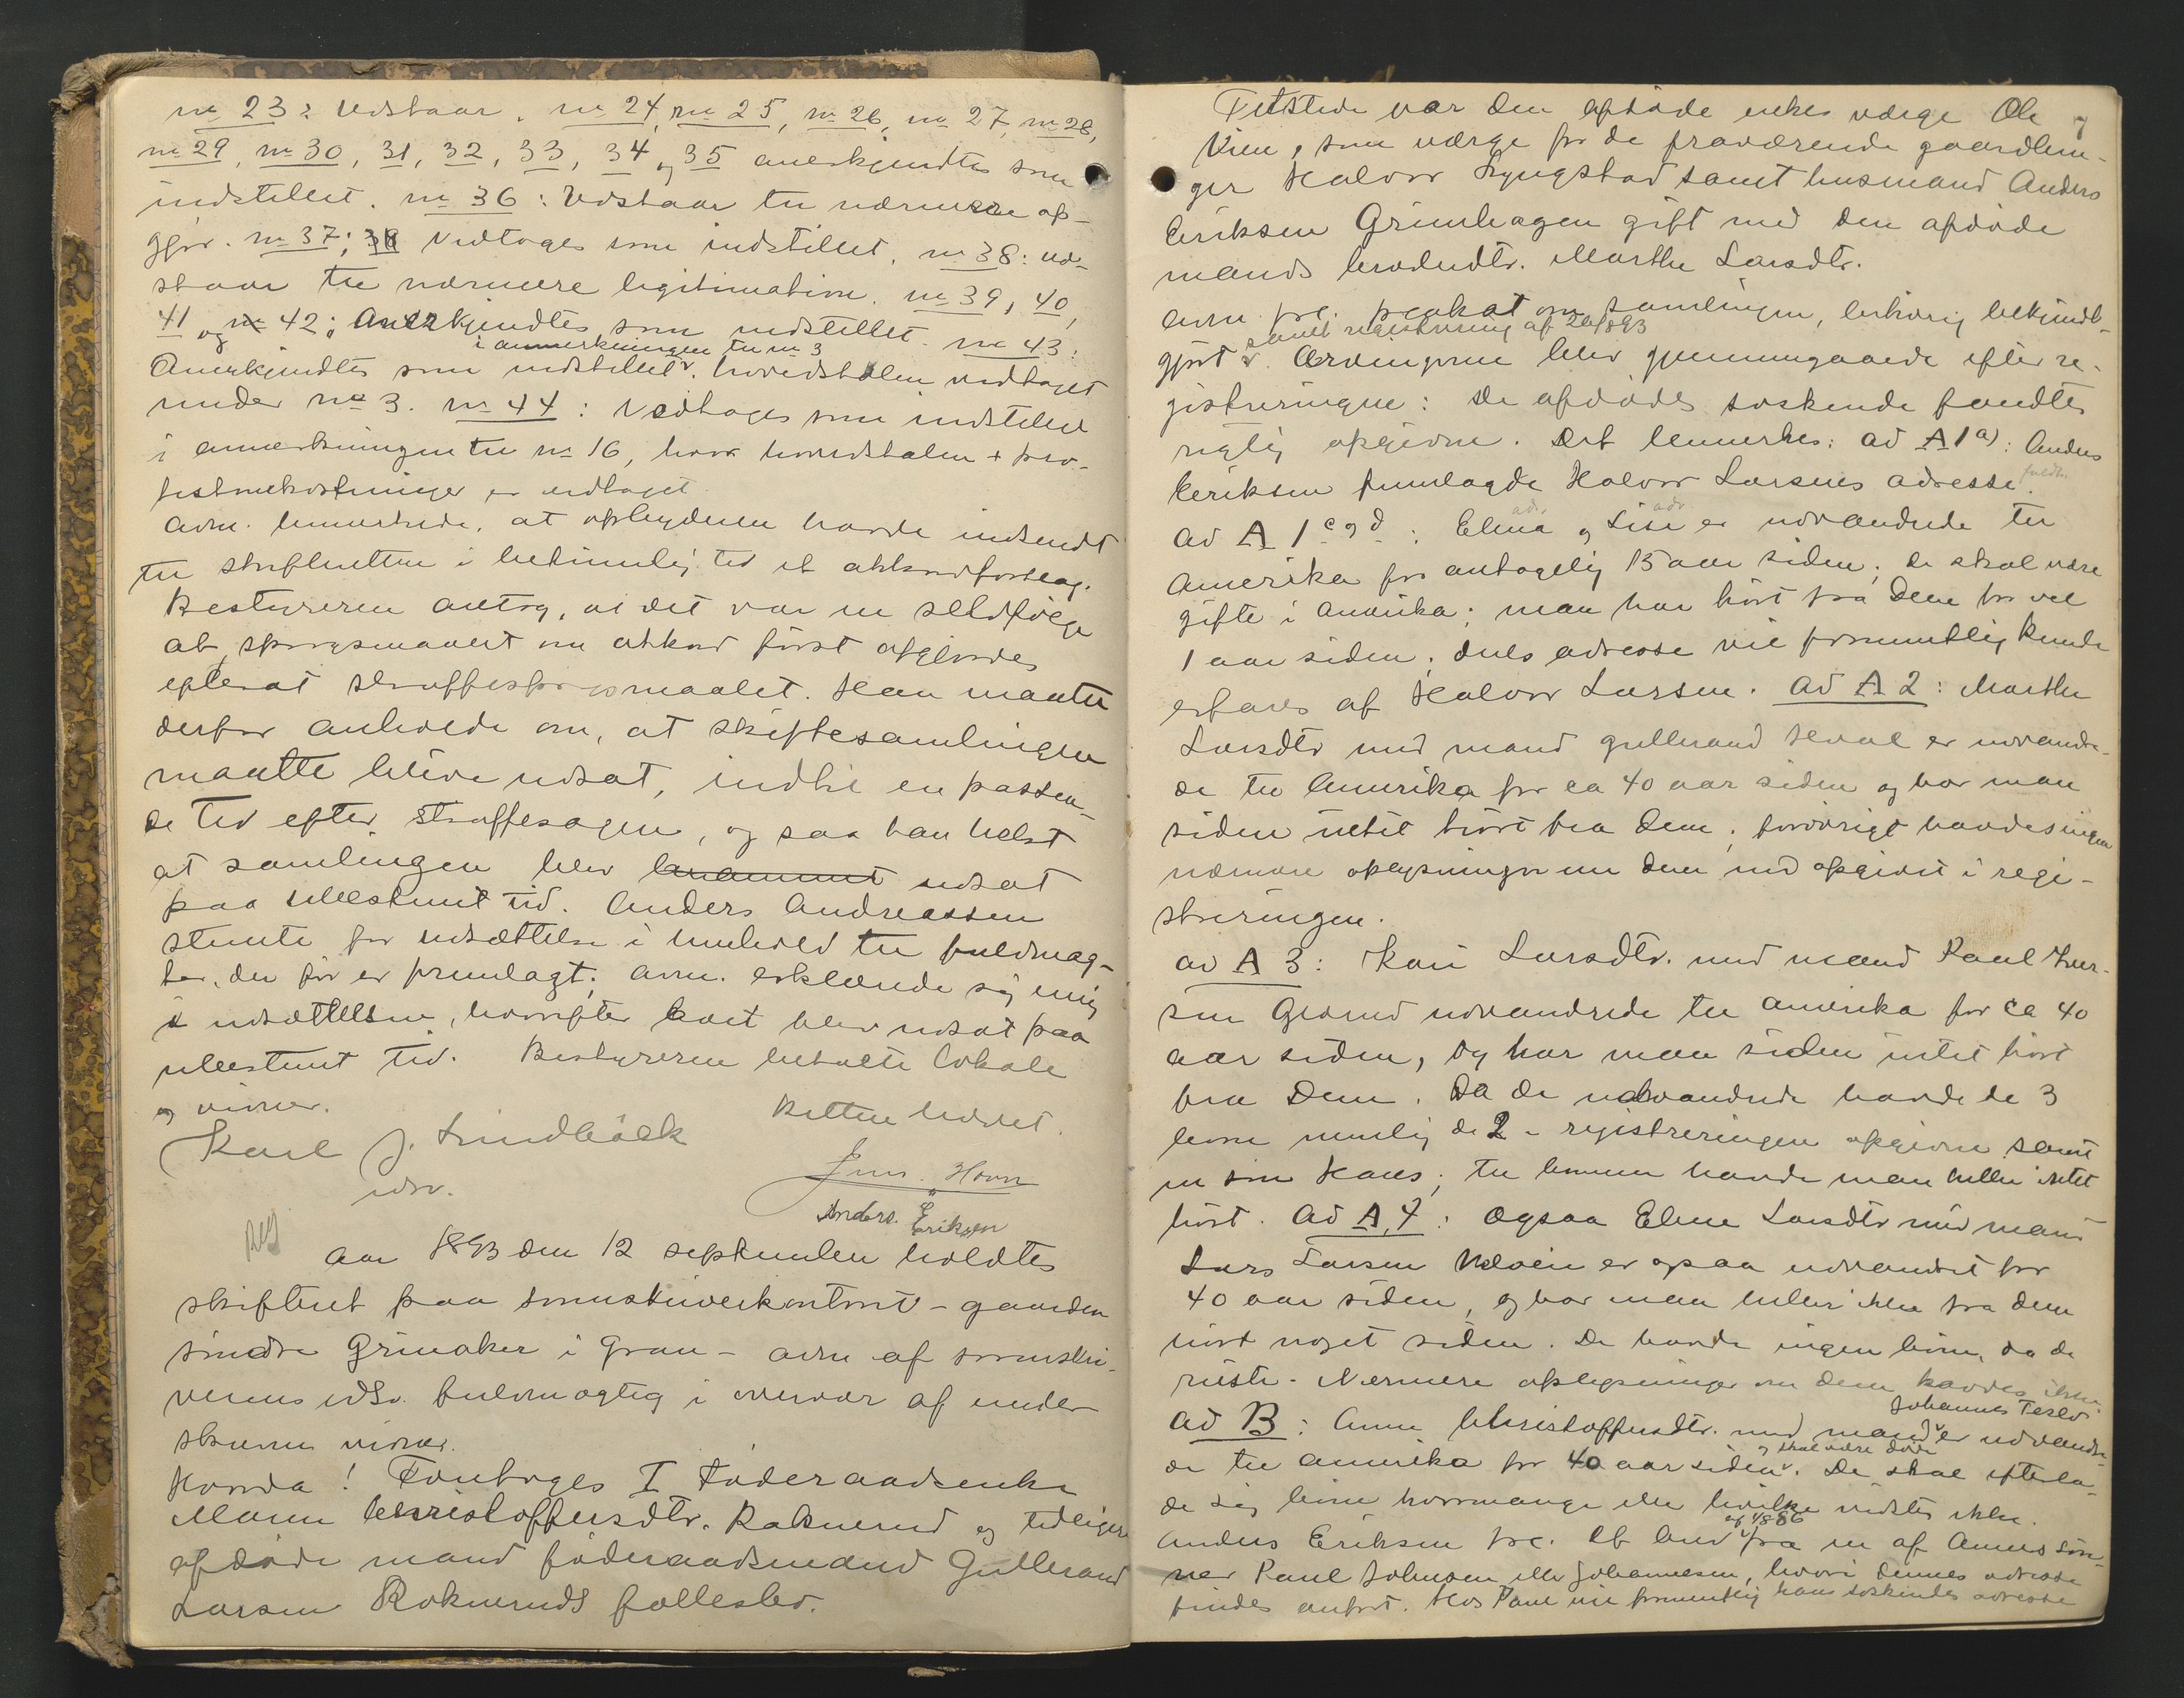 no 23: Udstaar. no 24, no 25, no 26, no 27, no 28,
no 29, no 30, 31, 32, 33, 34 og 35 anerkjendtes som
indstillet. no 36: Udstaar til nærmere op-
gjør. no 37; Vedtoges som indstillet. no 38: ud-
staar til nærmere legitimation. no 39, 40,
41 og no 42: Anerkjendtes som indstillet. no 43:
i anmerkningen til no 3
Anerkjendtes som indstillet. hovedstolen vedtaget
under no 3. no 44: Vedtoges som indstillet
i anmerkningen til no 16, hvor hovedstolen + pro-
testomkostninger er vedtaget.
Adm. bemerkede, at opbyderen havde indsendt
til skifteretten i betimelig tid et akkordforslag.
Bestyreren antog, at det var en selvfølge
at spørgsmaalet om akkord først afgjordes
efterat straffespørgsmaalet. Han maatte
derfor anholde om, at skiftesamlingen
maatte blive udsat, indtil en passen-
de tid efter straffesagen, og saa han helst
at samlingen blev udsat
paa ubestemt tid. Anders Andreassen
stemte for udsættelse i henhold til fuldmag-
ter, der før er fremlagt; adm. erklærede sig enig
i udsættelsen, hvorefter boet blev udsat paa
ubestemt tid. Bestyreren betalte lokale
og vidner.
Retten hævet.
Karl J. Lindbäck
edsv.
Jens. Hovn
Anders Eriksen
Aar 1893 den 12 september holdtes
skifteret paa sorenskriverkontoret - gaarden
søndre Grinaker i Gran - adm af sorenskri-
verens edsv. fuldmægtig i overvær af under-
skrevne vidner.
Hvorda! Foretoges I Føderaadsenke
Maren Christoffersdtr. Roknerud og tidligere
afdøde mand føderaadsmand Gulbrand
Larsen Rokneruds fællesbo.
Tilstede var den afdøde enkes værge Ole
Vien, som værge for de fraværende
Halvor Lyngstad samt husmand Anders
Eriksen Grinihagen gift med den afdøde
mands broderdtr. Marthe Larsdtr.
Adm. fre. proklat om samlingen, behørig bekjendt-
samt registrering af 26/8 93
gjort. Arvingerne blev gjennemgaaede efter re-
gistreringen: De afdødes søskende fandtes
rigtig opgivne. Det bemerkes: ad A 1 a): Anders
Eriksen fremlagde Halvor Larsens adresse.
ad A 1 c og d: Elina og Lise er udvandrede til
Amerika for antagelig 15 aar siden; de skal være
gifte i Amerika; man har hørt fra dem for vel
1 aar siden; deres adresse vil formentlig kunde
erfares af Halvor Larsen. ad A 2: Marthe
Larsdtr med mand Gulbrand Hval er udvandre-
de til Amerika for ca 40 aar siden og har man
siden intet hørt fra dem; forøvrigt havdes ingen
nærmere oplysninger om dem end opgivet i regi-
streringen.
ad A 3: Kari Larsdtr. med mand Paul Iver-
sen udvandrede til Amerika for ca 40
aar siden, og har man siden intet hørt
fra dem. Da de udvandrede havde de 3
børn nemlig de 2 i registreringen opgivne samt
en søn Hans; til børnene havde man heller intet
hørt. Ad A 4: Ogsaa Eline Larsdtr med mand
Lars Larsen er ogsaa udvandret for
40 aar siden, og har man heller ikke fra dem
hørt noget siden. De havde ingen børn, da de
reiste. Nærmere oplysninger om dem havdes ikke.
Johannes Teslo
ad B: Anne Christoffersdtr. med mand er udvandre-
og skal være døde
de til Amerika for 40 aar siden. De skal efterla-
de sig børn hvormange eller hvilke vidstes ikke.
af 4/8 86
Anders Eriksen fre. et brev fra en af Annes søn-
ner Paul Johnsen eller Johannesen, hvori dennes adresse
findes anført. Hos Paul vil formentlig hans søskendes adresse